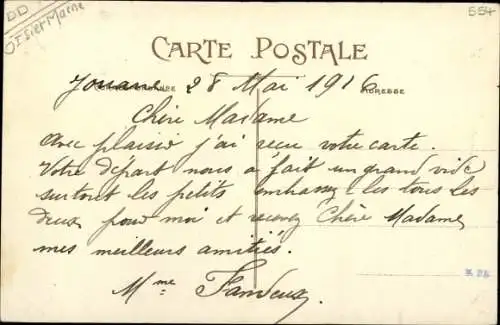 DD
OISIet Marne
554
CARTE POSTALE
Jouarre 28 Mai 1916
ADRESSE
Chère Madame
Avec plaisir j'ai recu votre carte.
Votre départ nous a fait un grand vide
surtout les petits embrassez-les tous les
deux pour moi et recevez Chère Madame,
mes meilleurs amitiés.
Mme